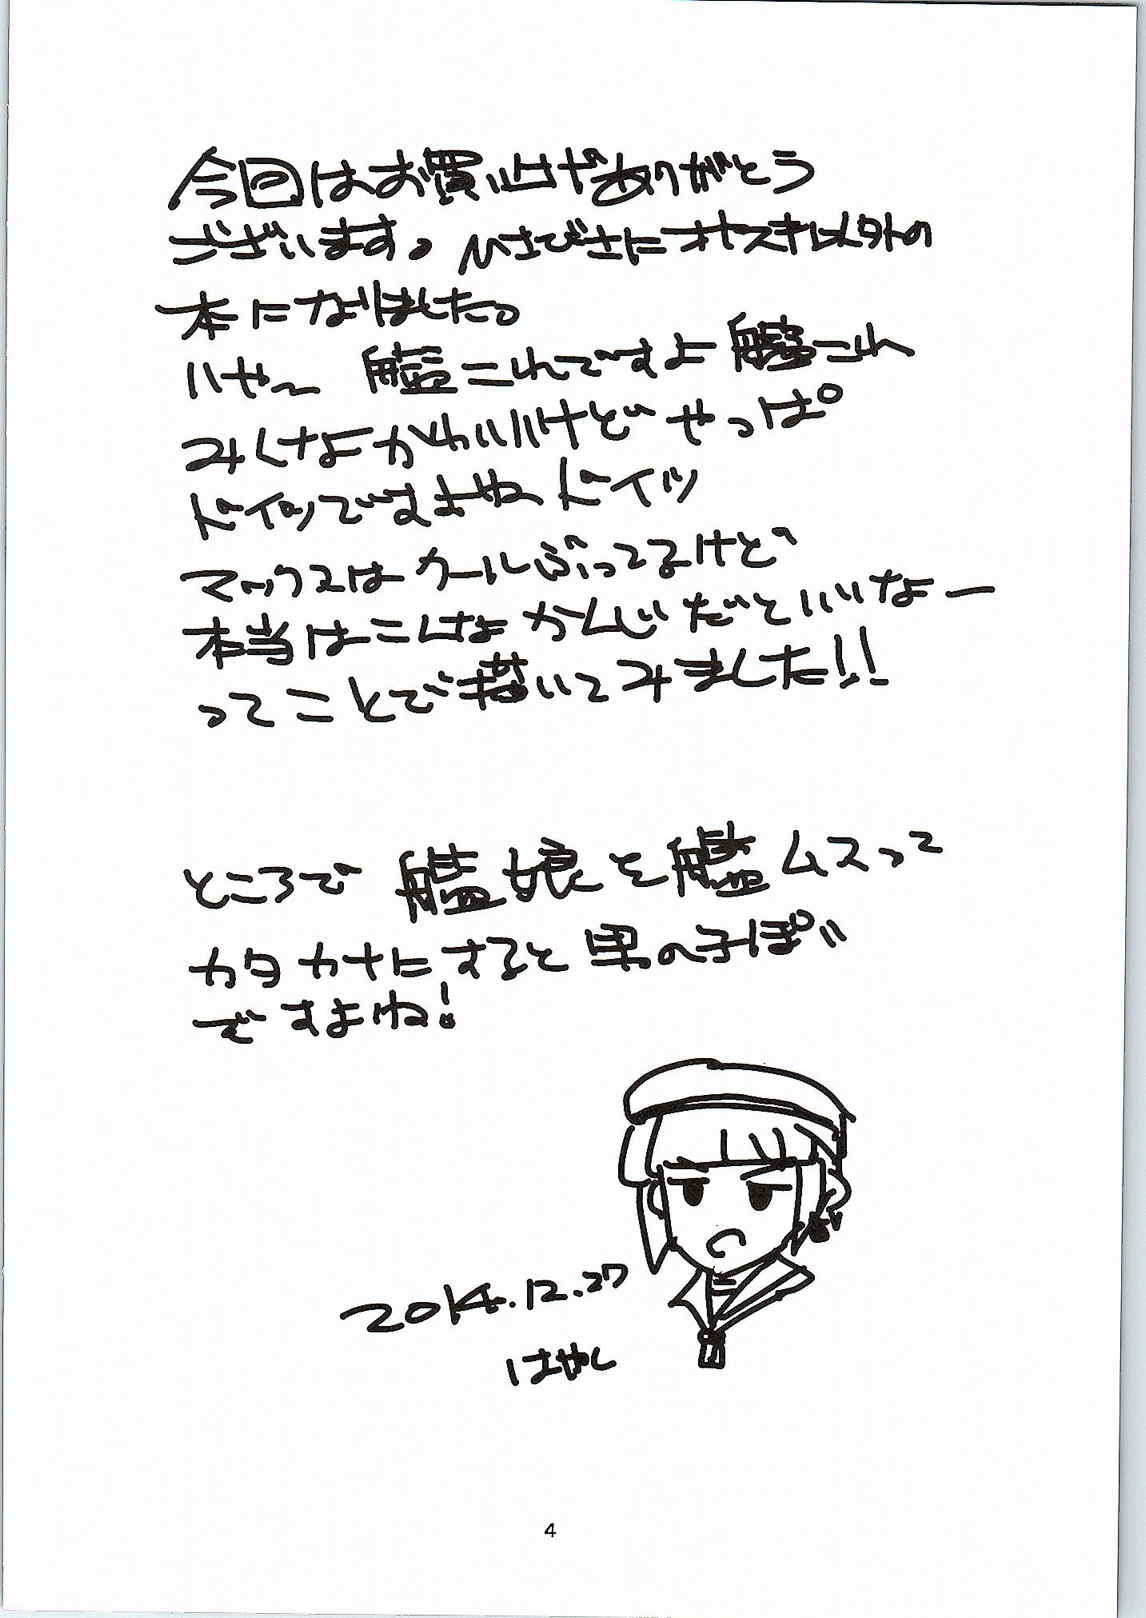 今回はお買い上げありがとう
ございます。ひさびさにオヤスキ以外の
本になりました。
いや～ 艦これですよ艦これ
みんなかわいいけど やっぱ
ドイツですよね ドイツ
マックスはクールぶってるけど
本当はこんなかんじだといいなー
ってことで描いてみました!!
ところで 艦娘を艦ムスって
カタカナにすると男の子ぽい
ですよね!
2014.12.27
はやし
4